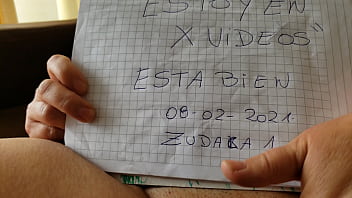 ESTOY EN
X VIDEOS"
ESTA BIEN
08-02-2021.
ZUDAKA 1